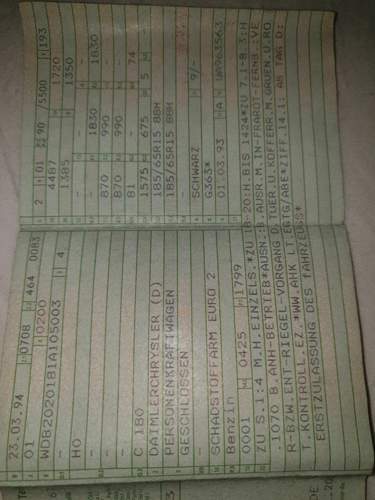 23.03.94 0708 464 0083
01 0200
WDB2020181A105003 4
HO
C 180
DAIMLERCHRYSLER (D)
PERSONENKRAFTWAGEN
GESCHLOSSEN
SCHADSTOFFARM EURO 2
Benzin
0001 0425 1799
2 01 90 /5500 193
4487 1720
1385 1350
- -
- 1830 - 1830
870 990 -
870 990 -
81 74
1575 675 5
185/65R15 88H
185/65R15 88H
-
SCHWARZ 9/-
G363*
01.03.93 A
ZU S.1:4 M.H.EINZELS.*ZU 18-20:H.BIS 1424*ZU 7.1-8.3:H
.1070 B.ANH-BETRIEB*AUSN.:B.AUSR.M.IN-FRAROT-FERNB.:VE
R-BZW.ENT-RIEGEL-VORGANG D.TUER.U.KOFFERR.M.GRUEN.U.RO
T.KONTROLL.EZ.*WW.AHK LT.EGTG/ABE*ZIFF.14.1: AB TAG D:
ERSTZULASSUNG DES FAHRZEUGS*